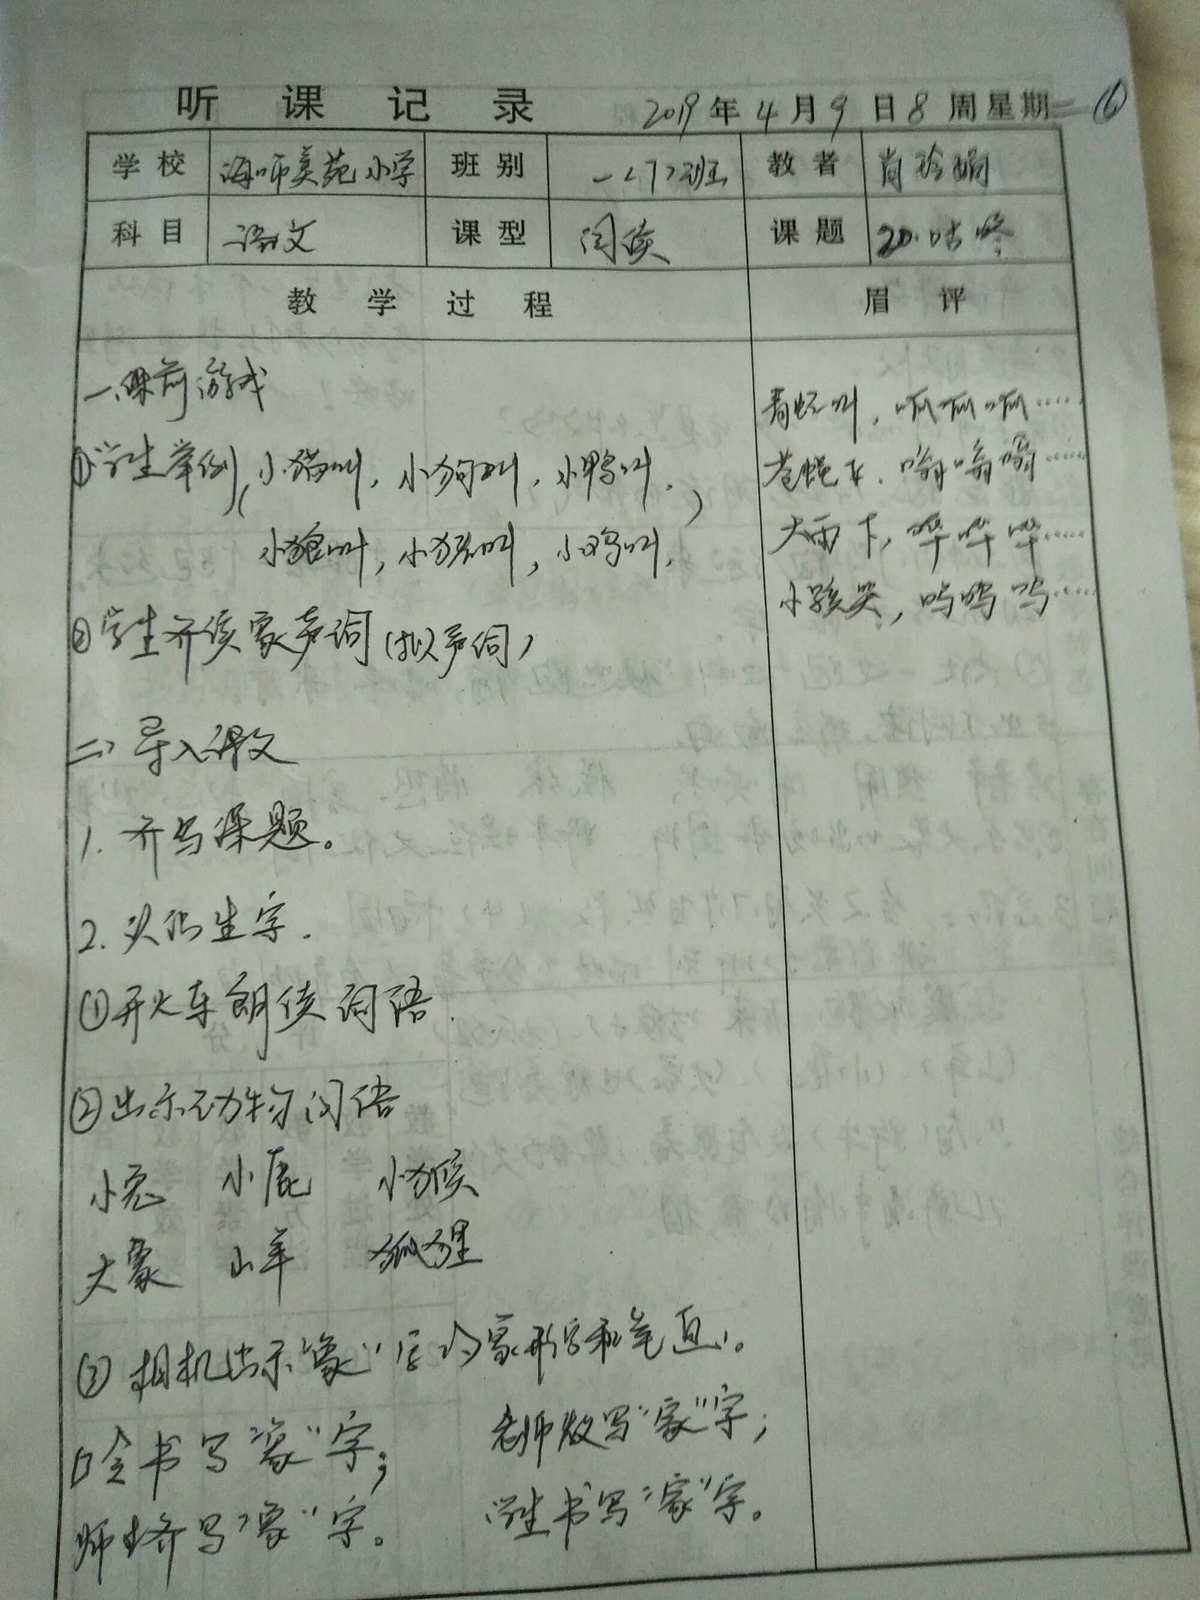 听课记录 2019年4月9日8周星期二 ⑯
学校 海师美苑小学 班别 一(7)班 教者 肖玲娟
科目 语文 课型 阅读 课题 20.咕咚
教学过程 眉评
一、课前游戏
①学生举例(小猫叫,小狗叫,小鸭叫,
小狼叫,小猴叫,小鸡叫,)
②学生齐读象声词(拟声词)
二、导入课文
1. 齐写课题。
2. 认识生字.
①开火车朗读词语.
②出示动物词语
小兔 小鹿 小猴
大象 山羊 狐狸
③相机出示"象"字的象形字和笔画。
书写"象"字; 老师范写"象"字;
师生齐写"象"字。 学生书写"象"字。
青蛙叫,呱呱呱……
苍蝇飞,嗡嗡嗡……
大雨下,哗哗哗……
小孩哭,呜呜呜……